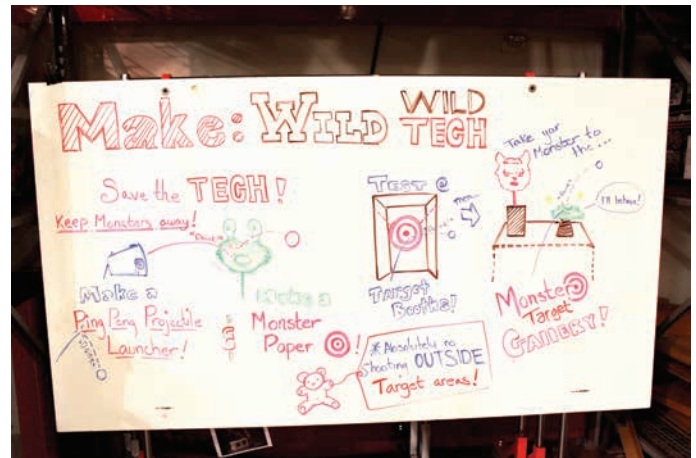 Make: WILD WILD TECH
Save the TECH!
Keep Monsters away!
Make a
Ping Pong Projectile
Launcher!
Make a
Monster
Paper
!
TEST @
Target
Booths!
Then
Take your
Monster to
the...
I'll behave!
Monster
Target
GALLERY!
* Absolutely no
Shooting OUTSIDE
Target areas!